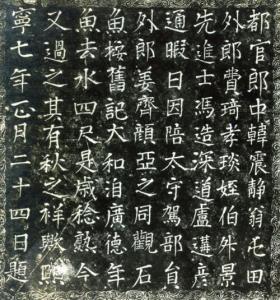 都官郎中韓震静翁屯田
外郎費琦孝琰姪伯升景
先進士馮造深道盧遘彦
通暇日因陪太守駕部員
外郎姜齊顔亞之同觀石
魚桉舊記大和洎廣德年
魚去水四尺是歲稔熟今
又過之其有秋之祥歟熙
寧七年正月二十四日題